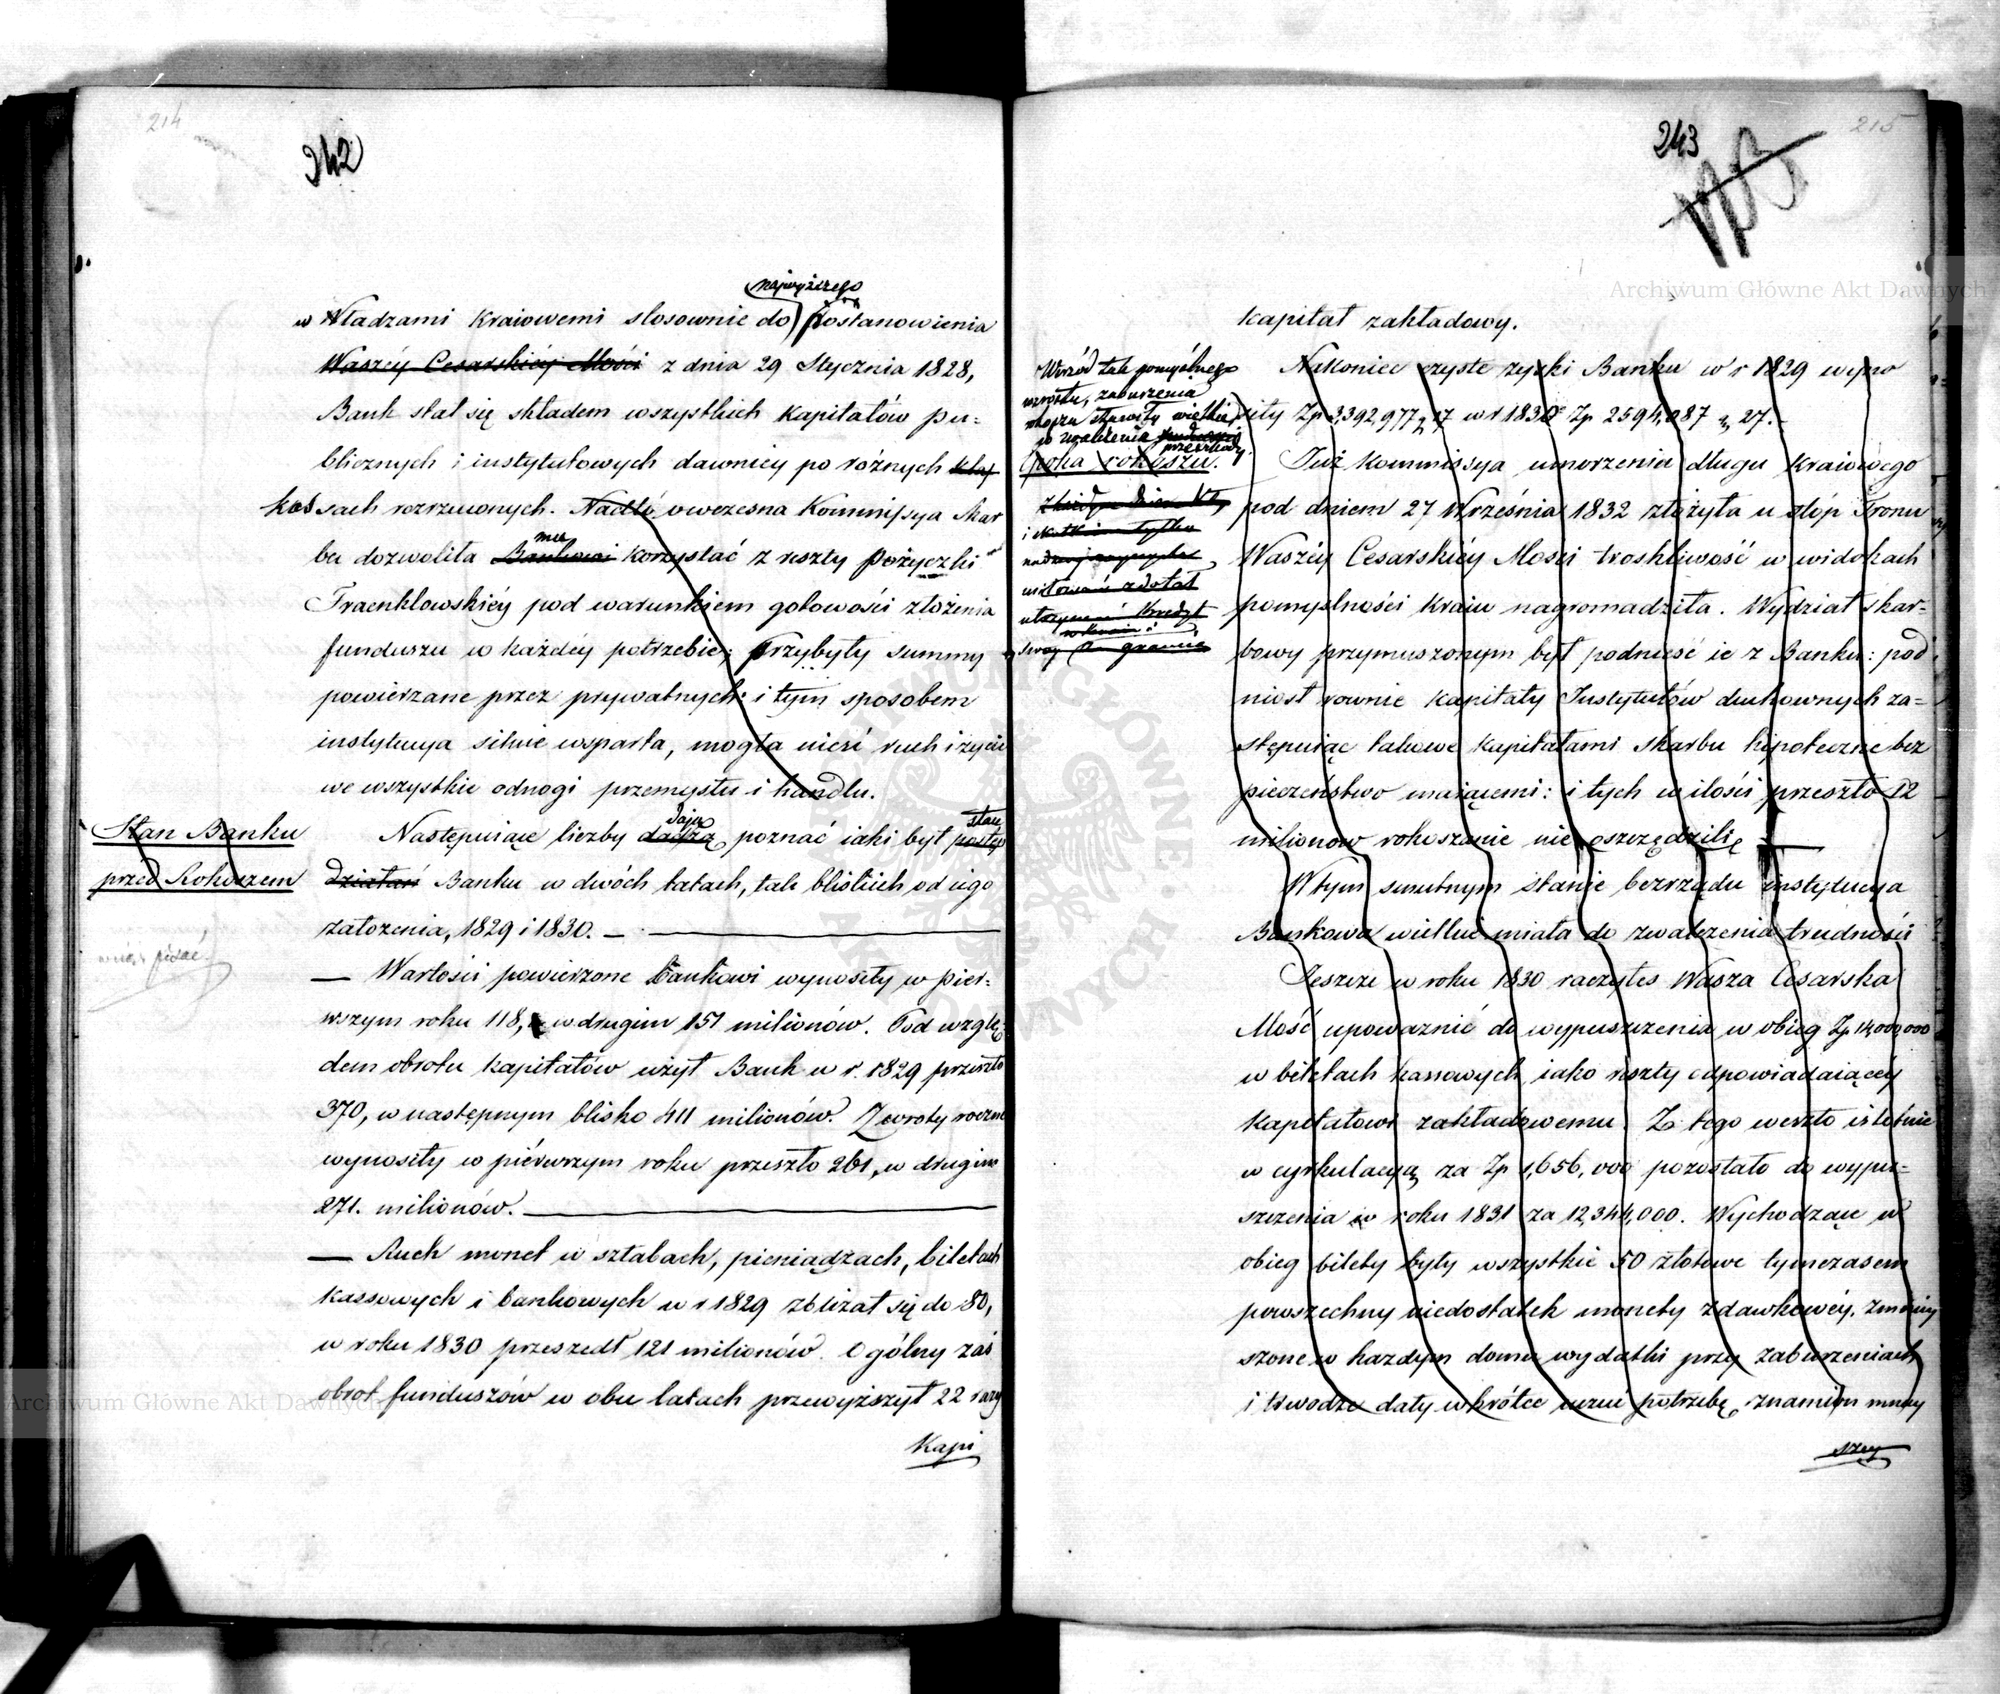 214
242
najwyższego
w Władzami Kraiowemi stosownie do Postanowienia
Waszéy Cesarskiéy Mości z dnia 29 Stycznia 1828,
Bank stał się składem wszystkich Kapitałów pu-
blicznych i instytutowych dawniey po różnych kas
kassach rozrzuconych. Nadto owczesna Kommissya Skar
mu
bu dozwoliła Bankowi korzystać z reszty Pożyczki
Fraenklowskiéy pod warunkiem gotowości złożenia
funduszu w każdéy potrzebie; Przybyły summy
powierzane przez prywatnych: i tym sposobem
instytucya silnie wsparta, mogła nieść ruch i życie
we wszystkie odnogi przemysłu i handlu.
Stan Banku
przed Rokoszem
dają
stan
Następuiące liczby dadzą poznać iaki był postęp
działań Banku w dwóch latach, tak bliskich od iego
założenia, 1829 i 1830. —
— Wartości powierzone Bankowi wynosiły w pier-
wszym roku 118, w drugim 151 milionów. Pod wzglę-
dem obrotu kapitałów użył Bank w r. 1829 przeszło
370, w następnym blisko 411 milionów. Zwroty roczne
wynosiły w piérwszym roku przeszło 261, w drugim
271. milionów.
— Ruch monet w sztabach, pieniądzach, biletach
kassowych i bankowych w r 1829 zbliżał się do 80,
w roku 1830 przeszedł 121 milionów. Ogólny zaś
obrot funduszów w obu latach przewyższył 22 razy
Kapi
215
243
kapitał zakładowy.
Wśród tak pomyślnego
wzrostu, zaburzenia
rokoszu stawiły wielkie
do zwalczenia trudności
przeszkody.
Epoka rokoszu.
Nakoniec czyste zyski Banku w r 1829 wyno
siły Zp 3,392,977 g 17 w r 1830 Zp 2594,087 g 27.
Już Kommissya umorzenia długu Kraiowego
pod dniem 27 Września 1832 złożyła u stóp Tronu
Waszéy Cesarskiéy Mości troskliwość w widokach
pomyślności Kraiu nagromadziła. Wydział skar-
bowy przymuszonym był podnieść ie z Banku: pod
niosł rownie kapitały Instytutów duchownych za-
stępuiąc takowe kapitałami skarbu hipoteczne bez
pieczeństwo maiącemi: i tych w ilości przeszło 12
milionow rokoszanie nie oszczędzili
W tym smutnym stanie bezrządu instytucya
Bankowa wielkie miała do zwalczenia trudności
Jeszcze w roku 1830 raczyłes Wasza Cesarska
Mość upoważnić do wypuszczenia w obieg Zp 14,000,000
w biletach kassowych iako reszty odpowiadaiącey
kapitałowi zakładowemu. Z tego weszło istotnie
w cyrkulacyą za Zp 1,656,000 pozostało do wypu-
szczenia w roku 1831 za 12,344,000. Wychodzące w
obieg bilety były wszystkie 50 złotowe tymczasem
powszechny niedostatek monety zdawkowéy, zmniey
szone w każdym domu wydatki przy zaburzeniach
i trwodze dały wkrótce uczuć potrzebę znamion mniey
szey
Archiwum Główne Akt Dawnych
Archiwum Główne Akt Dawnych
ARCHIWUM GŁÓWNE AKT DAWNYCH